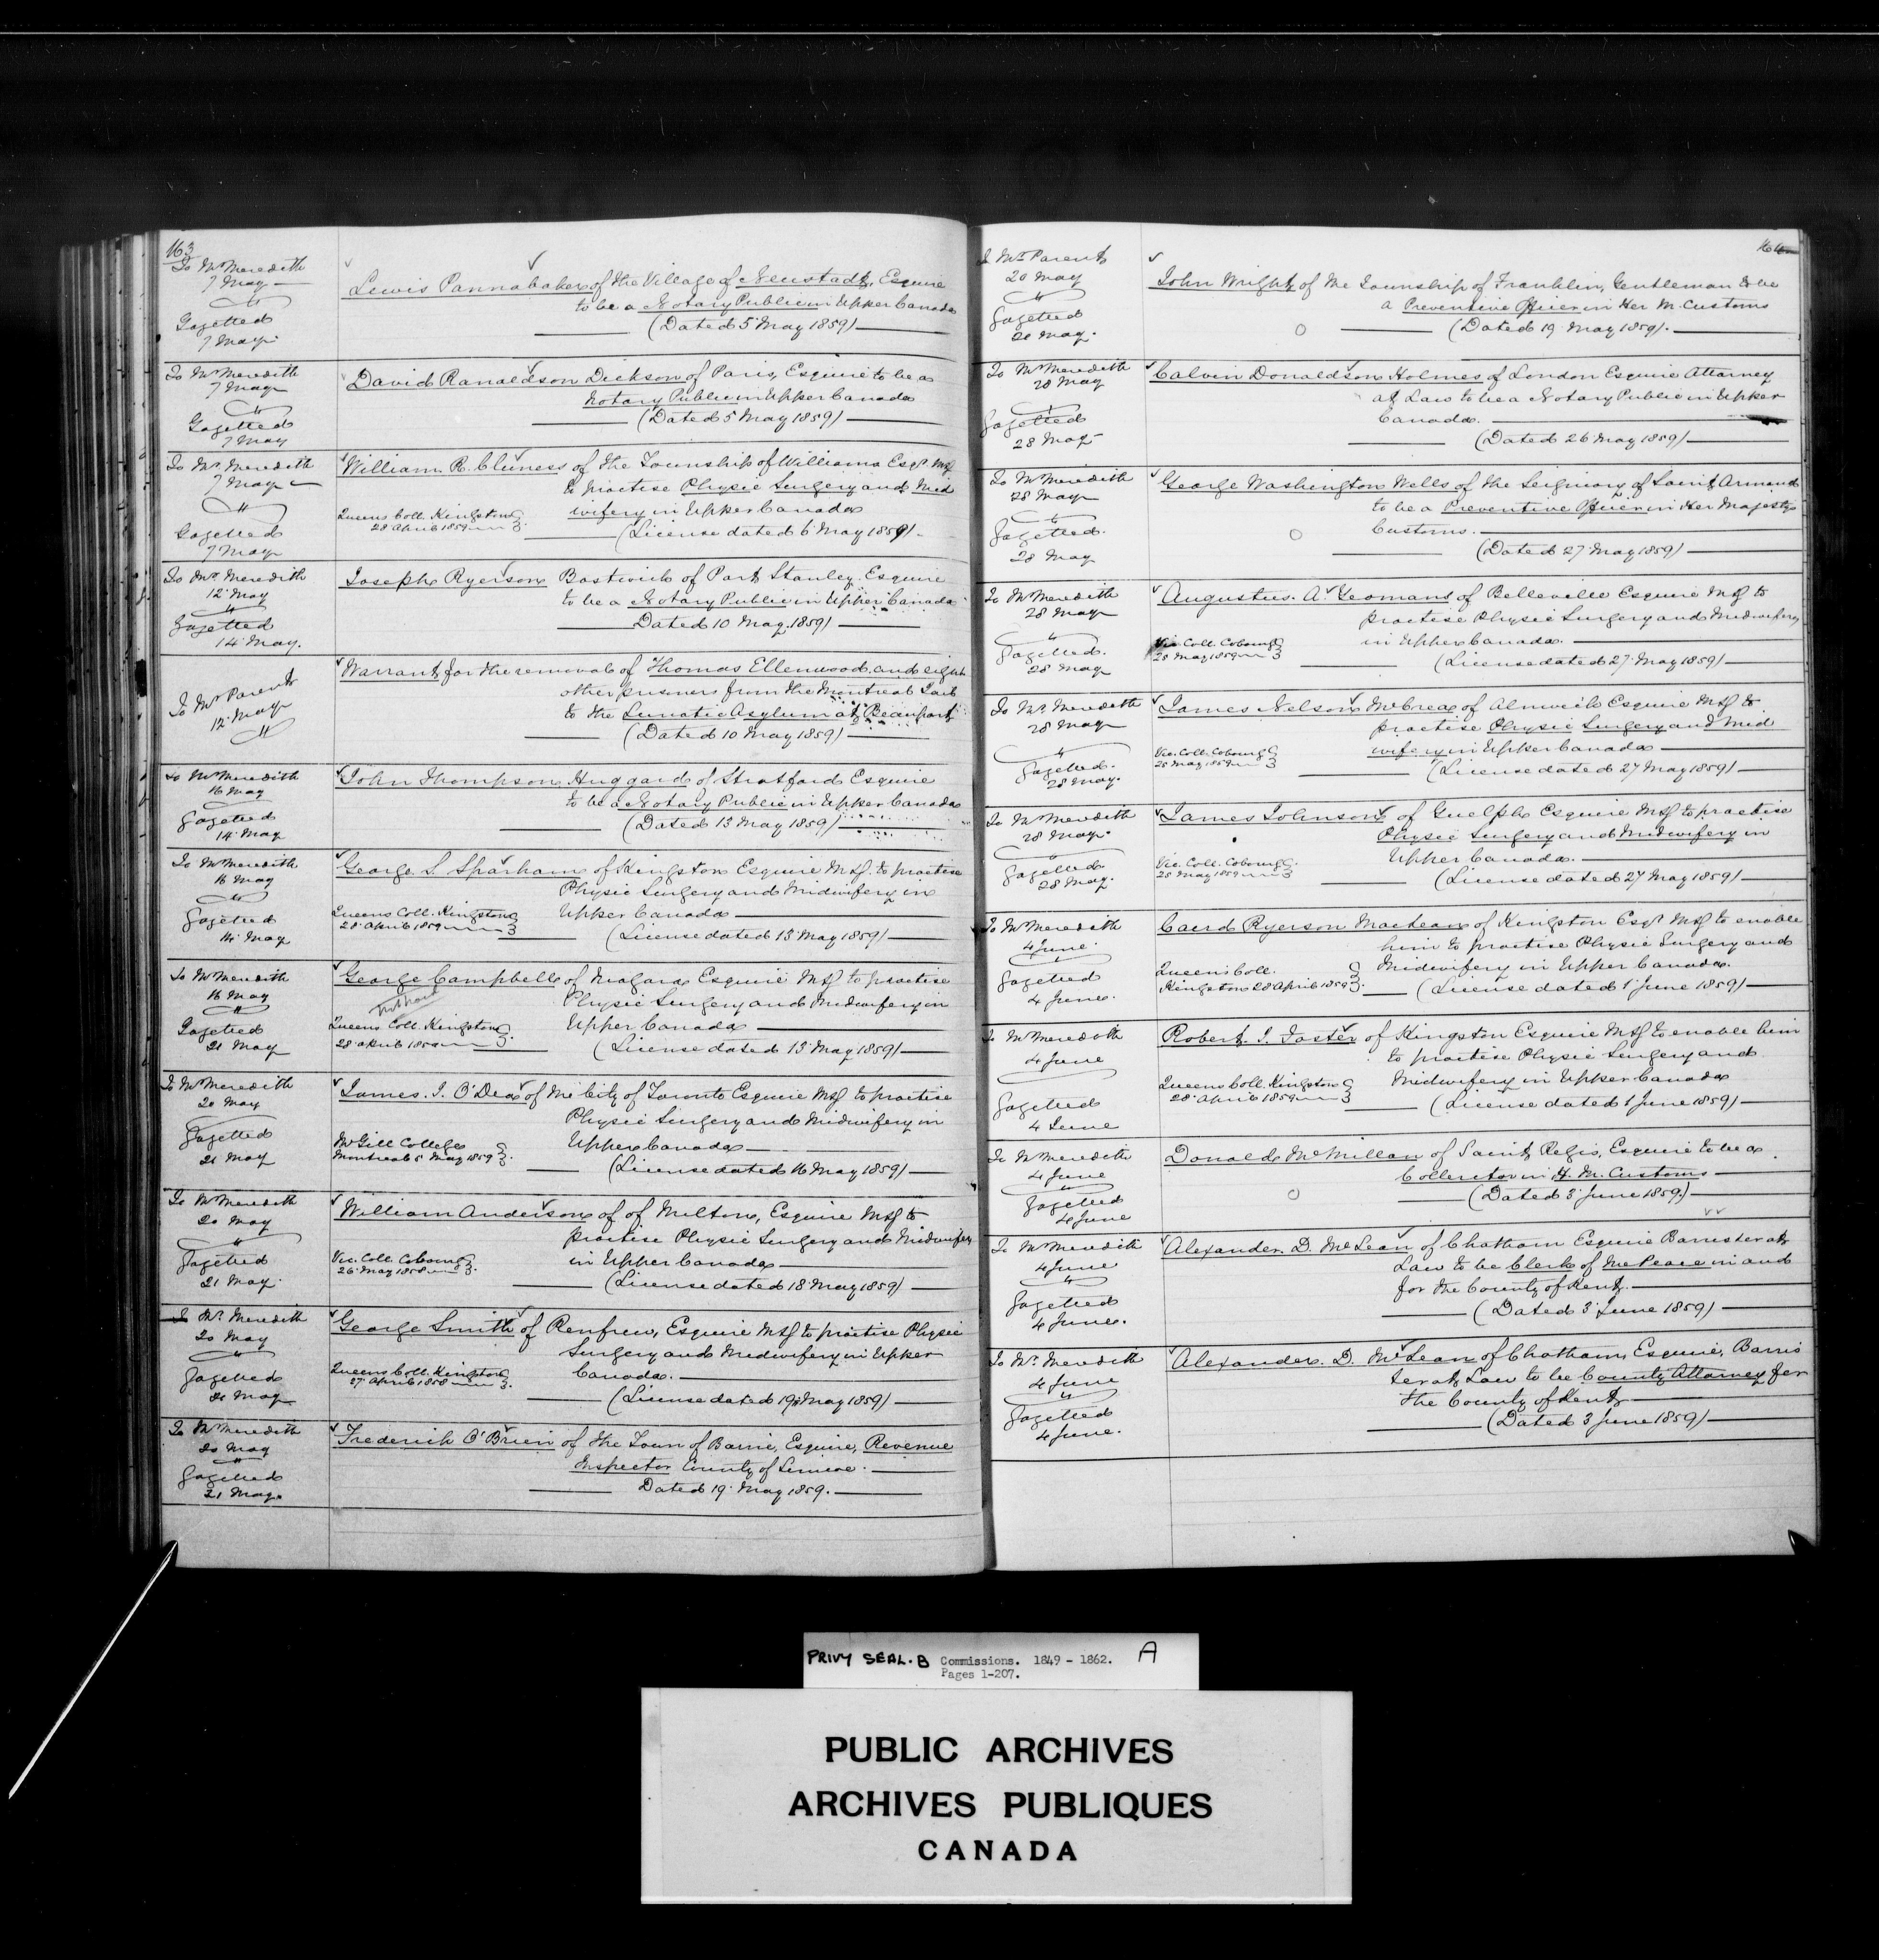 163
To Mr Meredith
7 May
"
Gazetted
7 May
Lewis Pannabaker of the Village of Neustadt, Esquire
to be a Notary Public in Upper Canada
(Dated 5 May 1859)
To Mr Meredith
7 May
"
Gazetted
7 May
David Ranaldson Dickson of Paris, Esquire to be a
Notary Public in Upper Canada
(Dated 5 May 1859)
To Mr Meredith
7 May
"
Gazetted
7 May
William R. Cluness of the Township of Williams Esqr. MD
to practise Physic Surgery and Mid
wifery in Upper Canada
Queens Coll. Kingston
28 April 1859
(License dated 6 May 1859)
To Mr Meredith
12 May
"
Gazetted
14 May.
Joseph Ryerson Bostwick of Port Stanley Esquire
to be a Notary Public in Upper Canada
Dated 10 May 1859)
To Mr Parent
12 May
"
Warrant for the removal of Thomas Ellenwood and eight
other prisoners from the Montreal Gaol
to the Lunatic Asylum at Beauport
(Dated 10 May 1859)
To Mr Meredith
16 May
Gazetted
14 May
John Thompson Huggard of Stratford Esquire
to be a Notary Public in Upper Canada
(Dated 13 May 1859)
To Mr Meredith
16 May
"
Gazetted
14 May
George S. Sparham of Kingston Esquire MD. to practise
Physic Surgery and Midwifery in
Upper Canada
Queens Coll. Kingston
28 April 1859
(License dated 13 May 1859)
To Mr Meredith
16 May
"
Gazetted
21 May
George Campbell of Niagara Esquire MD to practise
Physic Surgery and Midwifery in
Upper Canada
Queens Coll. Kingston
28 April 1859
(License dated 13 May 1859)
To Mr Meredith
20 May
Gazetted
21 May
James. J. O'Dea of the City of Toronto Esquire MD to practise
Physic Surgery and Midwifery in
Upper Canada
McGill College
Montreal 5 May 1859
(License dated 16 May 1859)
To Mr Meredith
20 May
"
Gazetted
21 May
William Anderson of of Milton, Esquire MD to
practise Physic Surgery and Midwifery
in Upper Canada
Vic. Coll. Cobourg
26 May 1858
(License dated 18 May 1859)
To Mr. Meredith
20 May
"
Gazetted
21 May
George Smith of Renfrew, Esquire MD to practise Physic
Surgery and Midwifery in Upper
Canada.
Queens Coll. Kingston
27 April 1858
(License dated 19 May 1859)
To Mr Meredith
20 May
"
Gazetted
21 May.
Frederick O'Brien of the Town of Barrie, Esquire, Revenue
Inspector County of Simcoe.
Dated 19 May 1859.
164
To Mr Parent
20 May
"
Gazetted
21 May.
John Wright of the Township of Franklin, Gentleman to be
a Preventive Officer in Her M. Customs
(Dated 19 May 1859).
To Mr Meredith
28 May
"
Gazetted
28 May
Calvin Donaldson Holmes of London Esquire Attorney
at Law to be a Notary Public in Upper
Canada.
(Dated 26 May 1859)
To Mr Meredith
28 May
"
Gazetted.
28 May
George Washington Wells of the Seigniory of Saint Armand
to be a Preventive Officer in Her Majestys
Customs.
(Dated 27 May 1859)
To Mr Meredith
28 May
"
Gazetted.
28 May
Augustus. A. Yeomans of Belleville Esquire MD to
practise Physic Surgery and Midwifery
in Upper Canada.
Vic. Coll. Cobourg
25 May 1859
(License dated 27 May 1859)
To Mr. Meredith
28 May
"
Gazetted.
28 May.
James Nelson McCrea of Alnwick Esquire MD to
practise Physic Surgery and Mid
wifery in Upper Canada
Vic. Coll. Cobourg
25 May 1859
(License dated 27 May 1859)
To Mr Meredith
28 May
"
Gazetted
28 May.
James Johnson of Guelph Esquire MD to practise
Physic Surgery and Midwifery in
Upper Canada.
Vic. Coll. Cobourg
25 May 1859
(License dated 27 May 1859)
To Mr Meredith
4 June
"
Gazetted
4 June
Caird Ryerson Maclean of Kingston Esqr. MD to enable
him to practise Physic Surgery and
Midwifery in Upper Canada.
Queens Coll.
Kingston 28 April 1859
(License dated 1 June 1859)
To Mr Meredith
4 June
Gazetted
4 June
Robert. J. Foster of Kingston Esquire MD to enable him
to practise Physic Surgery and
Midwifery in Upper Canada
Queens Coll. Kingston
28 April 1859
(License dated 1 June 1859)
To Mr Meredith
4 June
"
Gazetted
4 June
Donald McMillan of Saint Regis, Esquire to be a
Collector in H. M. Customs
(Dated 3 June 1859)
To Mr Meredith
4 June
"
Gazetted
4 June.
Alexander. D. McLean of Chatham Esquire Barrister at
Law to be Clerk of the Peace in and
for the County of Kent.
(Dated 3 June 1859)
To Mr. Meredith
4 June
"
Gazetted
4 June.
Alexander. D. McLean of Chatham, Esquire, Barris
ter at Law to be County Attorney for
the County of Kent
(Dated 3 June 1859)
PRIVY SEAL. B Commissions. 1849 - 1862. A
Pages 1-207.
PUBLIC ARCHIVES
ARCHIVES PUBLIQUES
CANADA